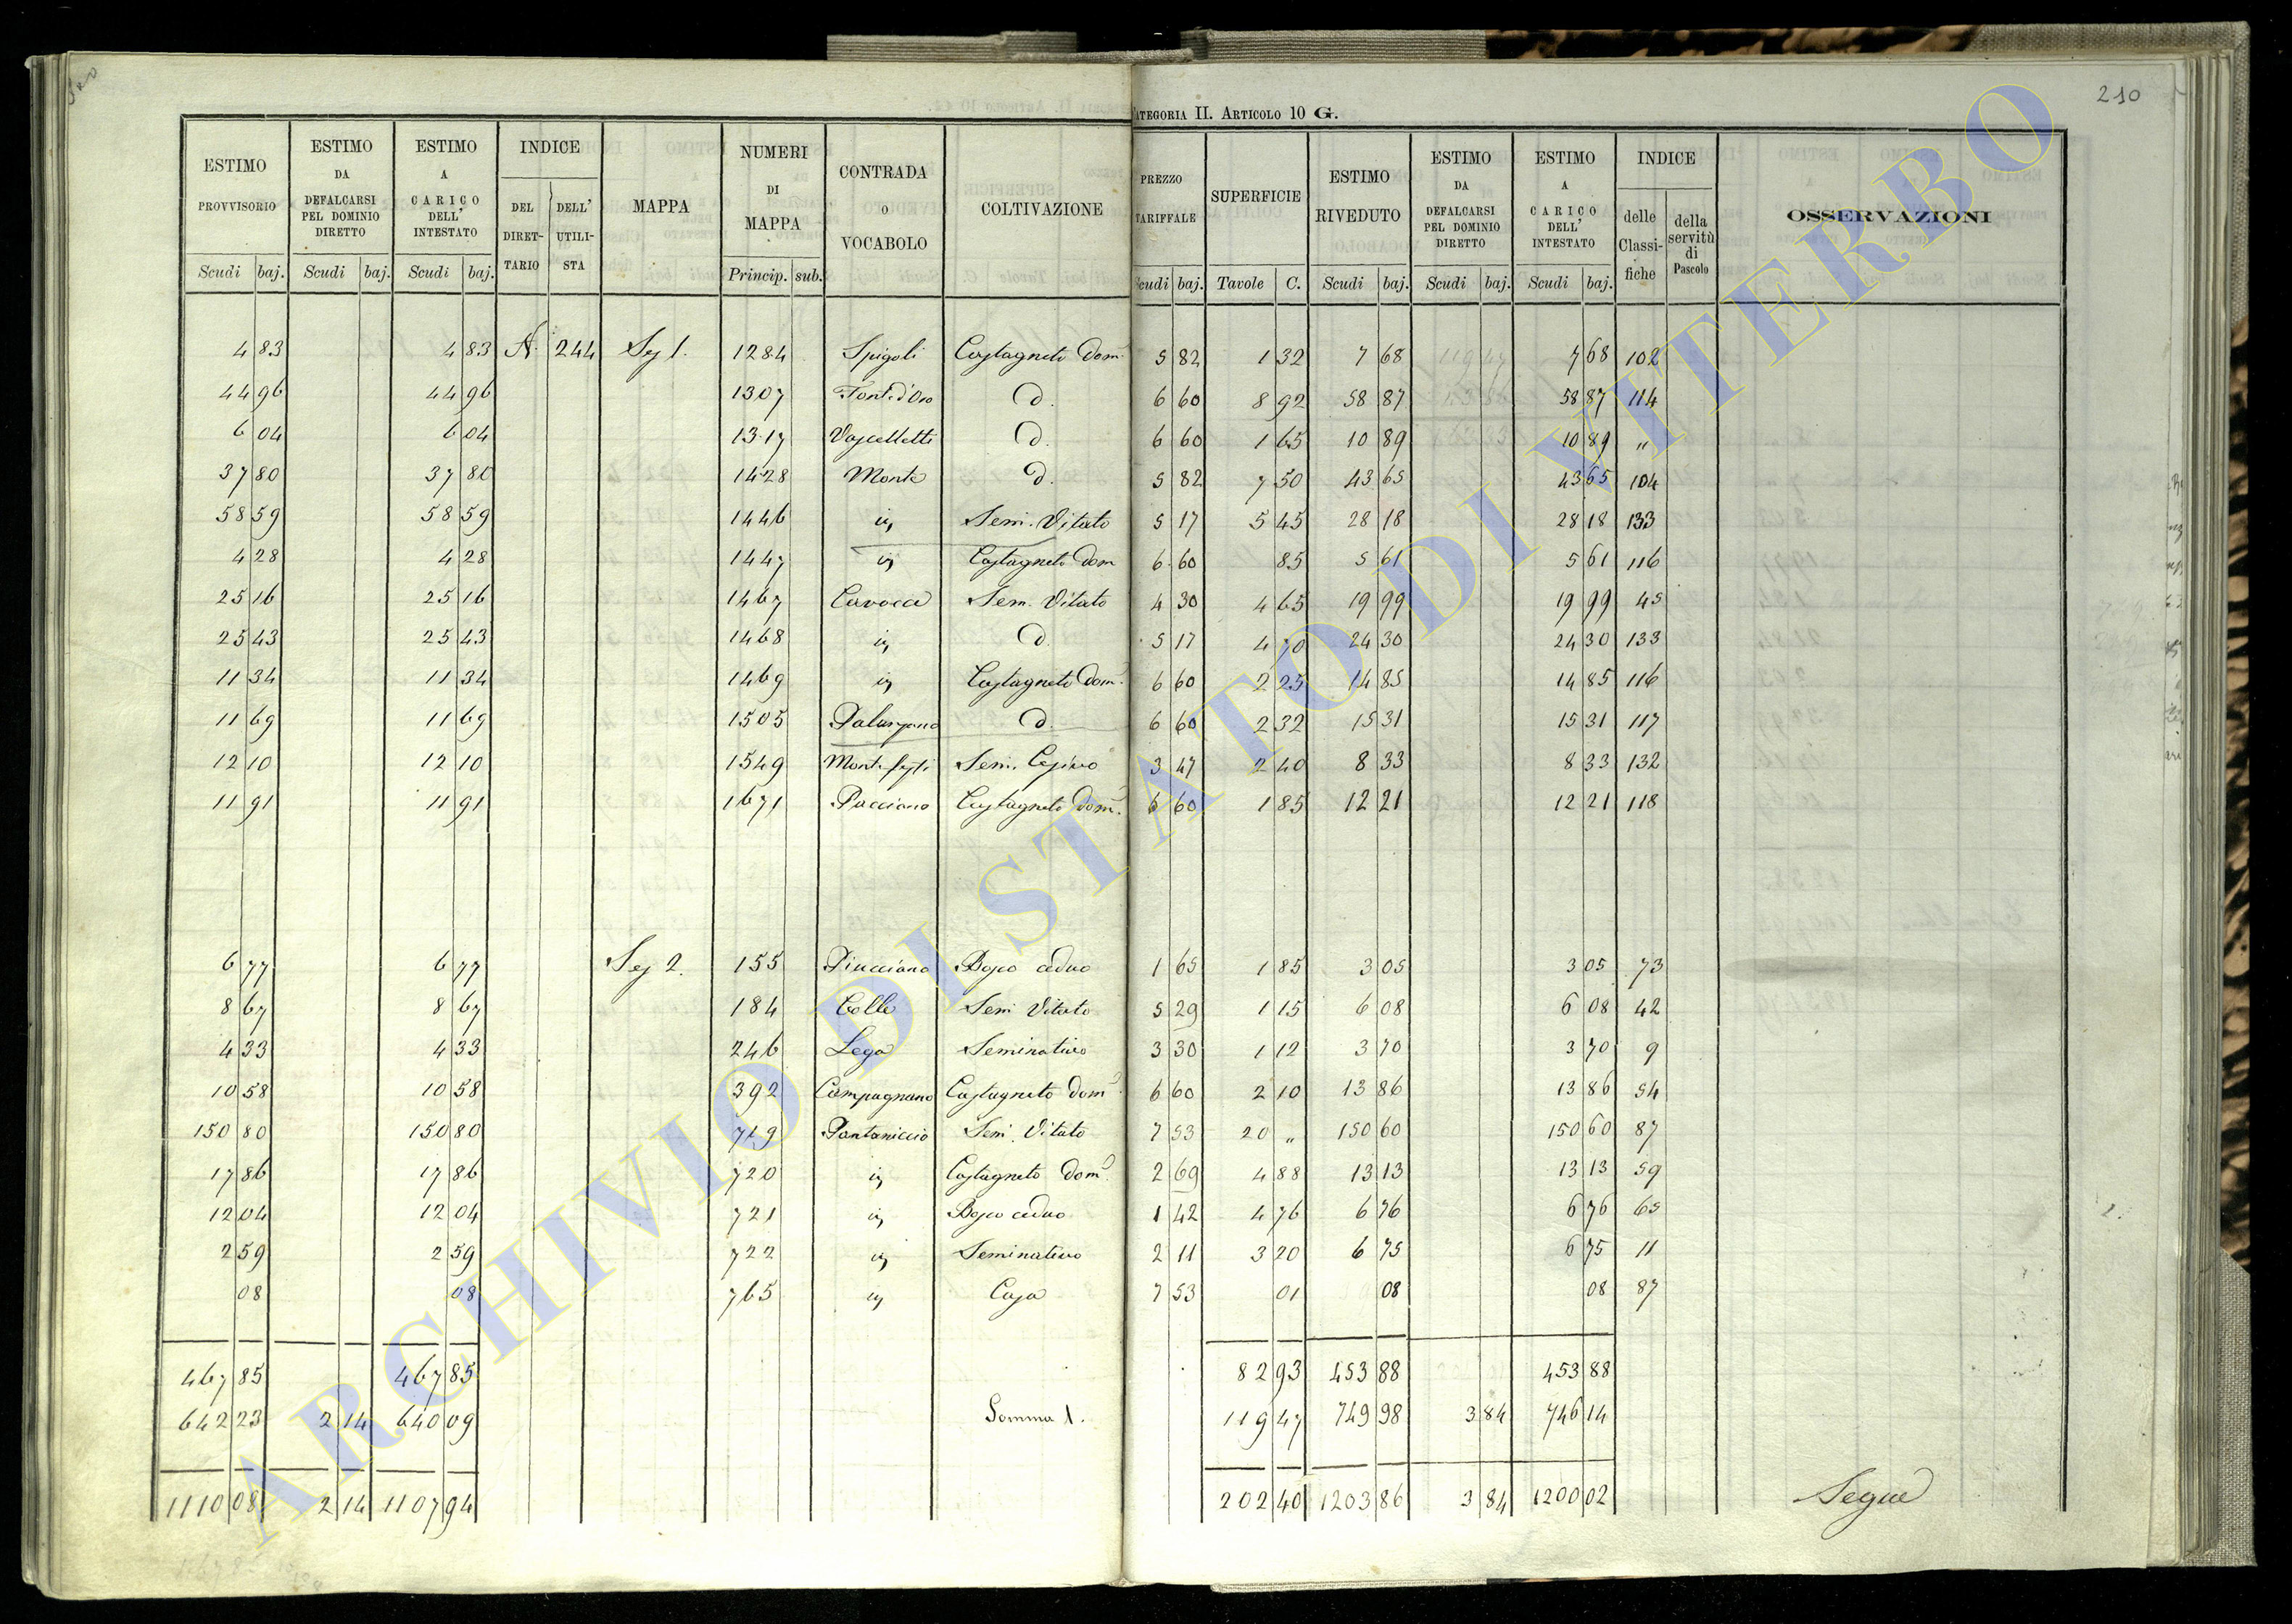 210
CATEGORIA II. ARTICOLO 10 G.
ESTIMO PROVVISORIO | ESTIMO DA DEFALCARSI PEL DOMINIO DIRETTO | ESTIMO A CARICO DELL' INTESTATO | INDICE DEL DIRETTARIO | DELL' UTILISTA | MAPPA | NUMERI DI MAPPA | CONTRADA O VOCABOLO | COLTIVAZIONE | PREZZO TARIFFALE | SUPERFICIE | ESTIMO RIVEDUTO | ESTIMO DA DEFALCARSI PEL DOMINIO DIRETTO | ESTIMO A CARICO DELL' INTESTATO | INDICE delle Classifiche | della servitù di Pascolo | OSSERVAZIONI
Scudi baj. | Scudi baj. | Scudi baj. | Princip. sub. | Scudi baj. | Tavole C. | Scudi baj. | Scudi baj. | Scudi baj.
4 83 | 4 83 | A. | 244 | Sez 1. | 1284 | Spigoli | Castagneto Dom. | 5 82 | 1 32 | 7 68 | 7 68 | 102
44 96 | 44 96 | 1307 | Font. d'Oro | d. | 6 60 | 8 92 | 58 87 | 58 87 | 114
6 04 | 6 04 | 1317 | Vascelletti | d. | 6 60 | 1 65 | 10 89 | 10 89 | "
37 80 | 37 80 | 1428 | Monte | d. | 5 82 | 7 50 | 43 65 | 43 65 | 104
58 59 | 58 59 | 1446 | ivi | Semi. Vitato | 5 17 | 5 45 | 28 18 | 28 18 | 133
4 28 | 4 28 | 1447 | ivi | Castagneto Dom | 6 60 | 85 | 5 61 | 5 61 | 116
25 16 | 25 16 | 1467 | Cavocca | Sem. Vitato | 4 30 | 4 65 | 19 99 | 19 99 | 45
25 43 | 25 43 | 1468 | ivi | d. | 5 17 | 4 70 | 24 30 | 24 30 | 133
11 34 | 11 34 | 1469 | ivi | Castagneto Dom. | 6 60 | 2 25 | 14 85 | 14 85 | 116
11 69 | 11 69 | 1505 | Palanzana | d. | 6 60 | 2 32 | 15 31 | 15 31 | 117
12 10 | 12 10 | 1549 | Sem. | 3 47 | 2 40 | 8 33 | 8 33 | 132
11 91 | 11 91 | 1671 | Pacciano | Castagneto Dom. | 6 60 | 1 85 | 12 21 | 12 21 | 118
6 77 | 6 77 | Sez 2. | 155 | Piucciano | Bosco ceduo | 1 65 | 1 85 | 3 05 | 3 05 | 73
8 67 | 8 67 | 184 | Colle | Sem Vitato | 5 29 | 1 15 | 6 08 | 6 08 | 42
4 33 | 4 33 | 246 | Lega | Seminativo | 3 30 | 1 12 | 3 70 | 3 70 | 9
10 58 | 10 58 | 392 | Campagnano | Castagneto Dom | 6 60 | 2 10 | 13 86 | 13 86 | 54
150 80 | 150 80 | 719 | Pantaniccio | Sem. Vitato | 7 53 | 20 " | 150 60 | 150 60 | 87
17 86 | 17 86 | 720 | ivi | Castagneto Dom. | 2 69 | 4 88 | 13 13 | 13 13 | 59
12 04 | 12 04 | 721 | ivi | Bosco ceduo | 1 42 | 4 76 | 6 76 | 6 76 | 65
2 59 | 2 59 | 722 | ivi | Seminativo | 2 11 | 3 20 | 6 75 | 6 75 | 11
08 | 08 | 765 | ivi | Casa | 7 53 | 01 | 08 | 08 | 87
467 85 | 467 85 | 82 93 | 453 88 | 453 88
642 23 | 2 14 | 640 09 | Somma 1. | 119 47 | 749 98 | 3 84 | 746 14
1110 08 | 2 14 | 1107 94 | 202 40 | 1203 86 | 3 84 | 1200 02 | Segue
ARCHIVIO DI STATO DI VITERBO